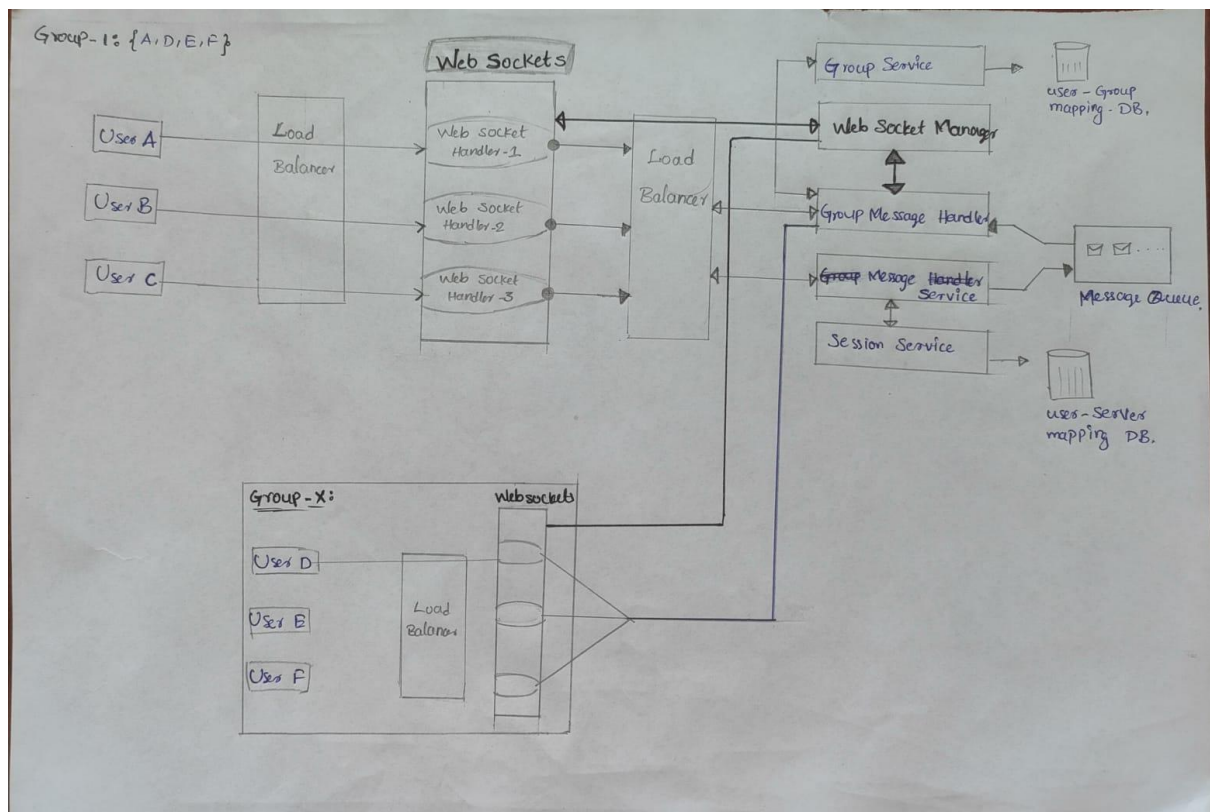 Group-1: {A,D,E,F}
Web Sockets
User A
User B
User C
Load
Balancer
Web Socket
Handler-1
Web Socket
Handler-2
Web Socket
Handler-3
Load
Balancer
Group Service
user-Group
mapping-DB.
Web Socket Manager
Group Message Handler
Group Message Handler
Service
Message Queue.
Session Service
user-Server
mapping DB.
Group-X:
Websockets
User D
User E
User F
Load
Balancer